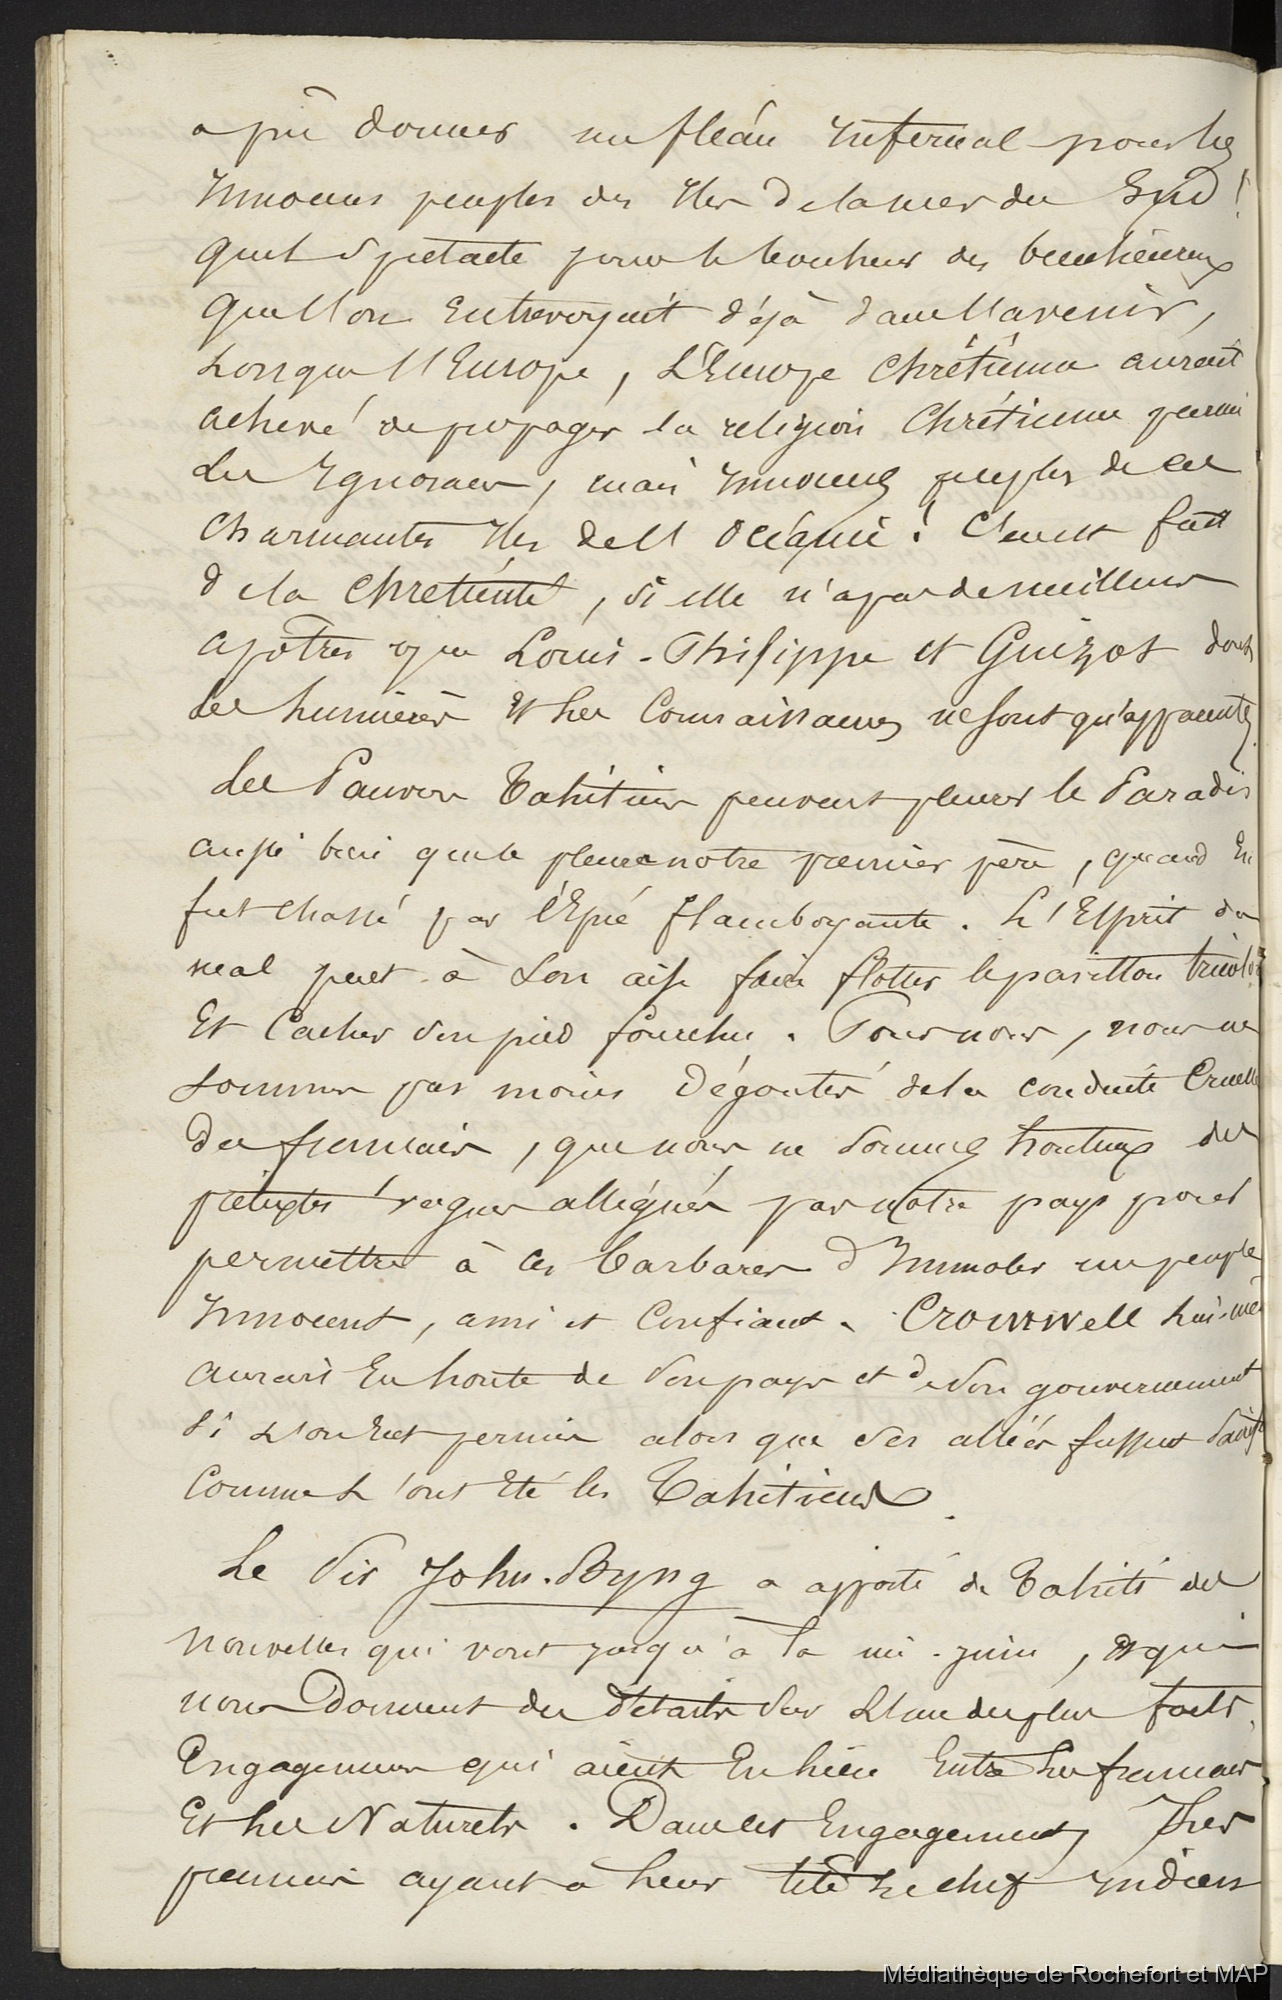 a pu donner un fléau Infernal pour les
Innocens peuples des Iles de la mer du Sud!
quel Spectacle pour le bonheur des bienheureux
que l'on Entrevoyait déjà dans l'avenir,
Lorsque l'Europe, L'Europe Chrétienne aurait
achevé de propager la religion Chrétienne parmi
les Ignorans, mais Innocens peuples de ces
Charmantes Iles de l'Océanie! C'en est fait
de la Chretienté, si elle n'a pas de meilleurs
apôtres que Louis-Philippe et Guizot dont
les Lumières Et les Connaissances ne sont qu'apparentes.
Les Pauvres Tahitiens peuvent pleurer le Paradis
aussi bien que le pleura notre premier père, quand En
fut chassé par l'Epée flamboyante. L'Esprit du
mal peut à Son aise faire flotter le pavillon tricolor
Et Cacher Son pied fourchu. Pour nous, nous ne
Sommes pas moins Dégoutés de la conduite Cruelle
Des français, que nous ne Sommes honteux des
prétextes vagues allégués par notre pays pour
permettre à ces barbares D'Immoler un peuple
Innocent, ami et Confiant. Cromwell Lui-mê
aurait Eu honte de Son pays et de Son gouvernement
Si L'on Eut permis alors que Ses alliés fussent
Comme L'ont Eté les Tahitiens.
Le Sir John-Byng a apporté de Tahiti des
nouvelles qui vont jusqu'à la mi-juin, et qui
nous Donnent des détails Sur L'un des plus forts
Engagemens qui aient Eu lieu Entre Les français
Et Les Naturels. Dans cet Engagement, Les
premiers ayant à Leur tête Le chef Indien
Médiathèque de Rochefort et MAP